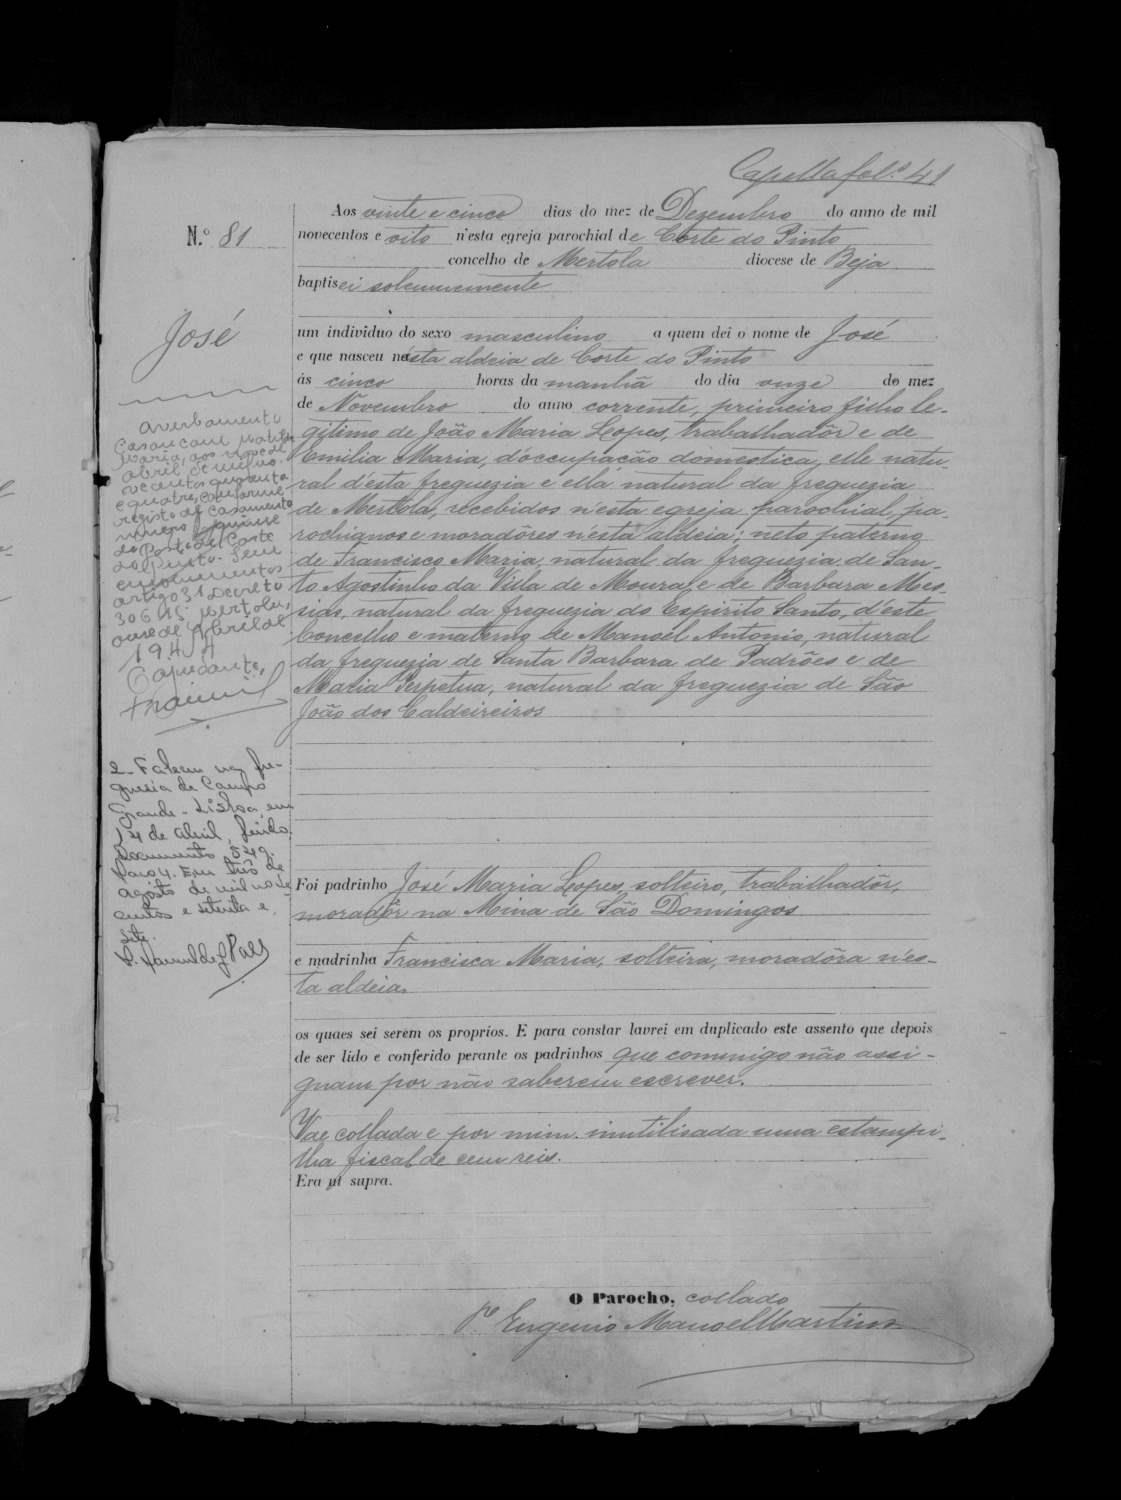 Capella fol.º 41
Nº 81
José
Aos vinte e cinco dias do mez de Dezembro do anno de mil
novecentos e oito n'esta egreja parochial de Corte do Pinto
concelho de Mertola diocese de Beja
baptisei solemnemente
um individuo do sexo masculino a quem dei o nome de José
e que nasceu nésta aldeia de Corte do Pinto
ás cinco horas da manhã do dia onze do mez
de Novembro do anno corrente, primeiro filho le-
gitimo de João Maria Lopes, trabalhadôr e de
Emilia Maria, d'occupação domestica, elle natu-
ral d'ésta freguezia e ella natural da freguezia
de Mertola, recebidos n'ésta egreja parochial, pa-
rochianos e moradôres n'ésta aldeia; neto paterno
de Francisco Maria, natural da freguezia de San-
to Agostinho da Villa de Moura, e de Barbara Mes-
sias, natural da freguezia do Espirito Santo, d'éste
Concelho e materno de Manoel Antonio, natural
da freguezia de Santa Barbara de Padrões e de
Maria Perpetua, natural da freguezia de São
João dos Caldeireiros
Foi padrinho José Maria Lopes, solteiro, trabalhadôr,
moradôr na Mina de São Domingos
e madrinha Francisca Maria, solteira, moradôra n'es-
ta aldeia.
os quaes sei serem os proprios. E para constar lavrei em duplicado este assento que depois
de ser lido e conferido perante os padrinhos que commigo não assi-
gnam por não saberem escrever.
Vae collada e por mim inutilisada uma estampi-
lha fiscal de cem reis.
Era ut supra.
O Parocho, collado
Pe. Eugenio Manoel Martins
averbamento
Casou com
Maria, aos
abril de mil no-
vecentos quarenta
e quatro, conforme
registo de casamento
numero quinze
do Posto de Corte
do Pinto. Sem
emolumentos
artigo 31 Decreto
30615. Mertola,
onze de Abril de
1944
O ajudante,
2- Faleceu na fre-
guesia de Campo
Grande - Lisboa, em
24 de abril, findo.
Documento 529,
maço 4. Em três de
agosto de mil nove-
centos e setenta e
sete.